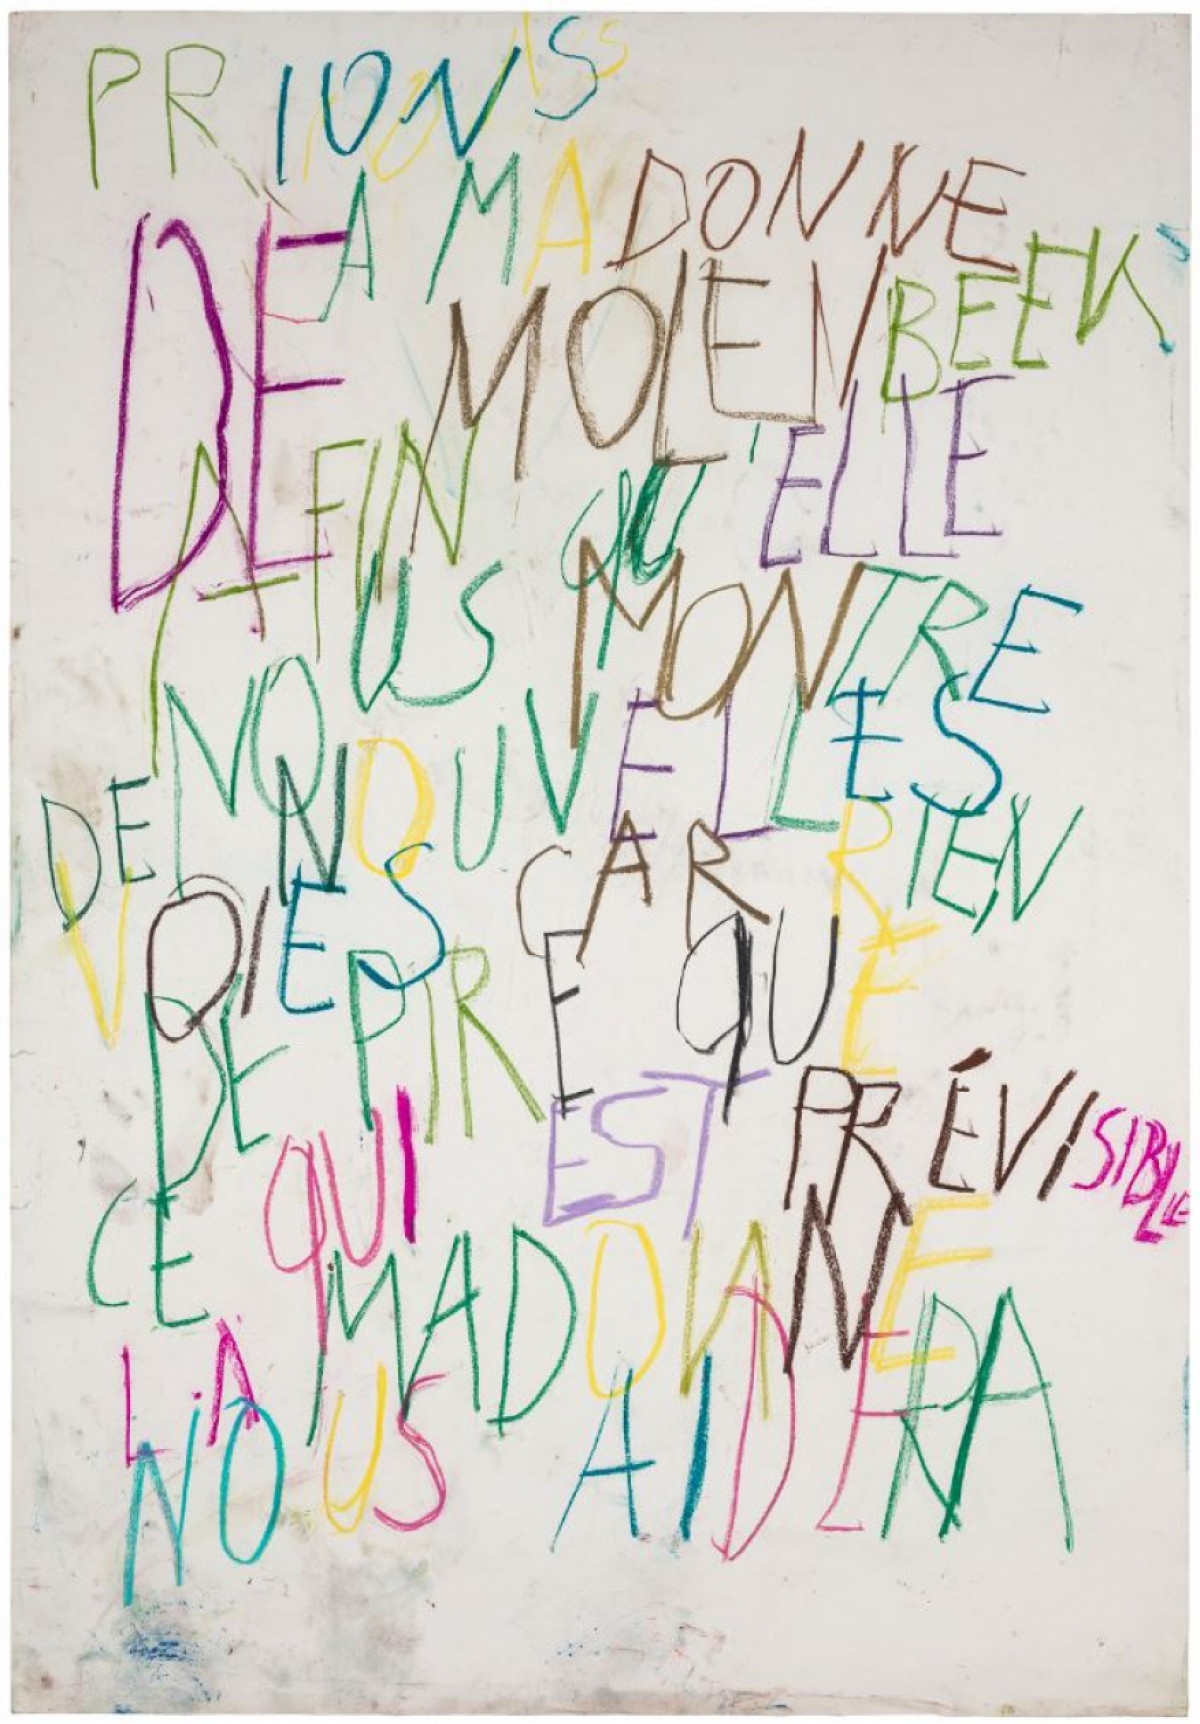 PRIONS
LA MADONNE
DE MOLENBEEK
AFIN QU'ELLE
NOUS MONTRE
DE NOUVELLES
VOIES CAR RIEN
DE PIRE QUE
CE QUI EST PRÉVISIBLE
LA MADONNE
NOUS AIDERA